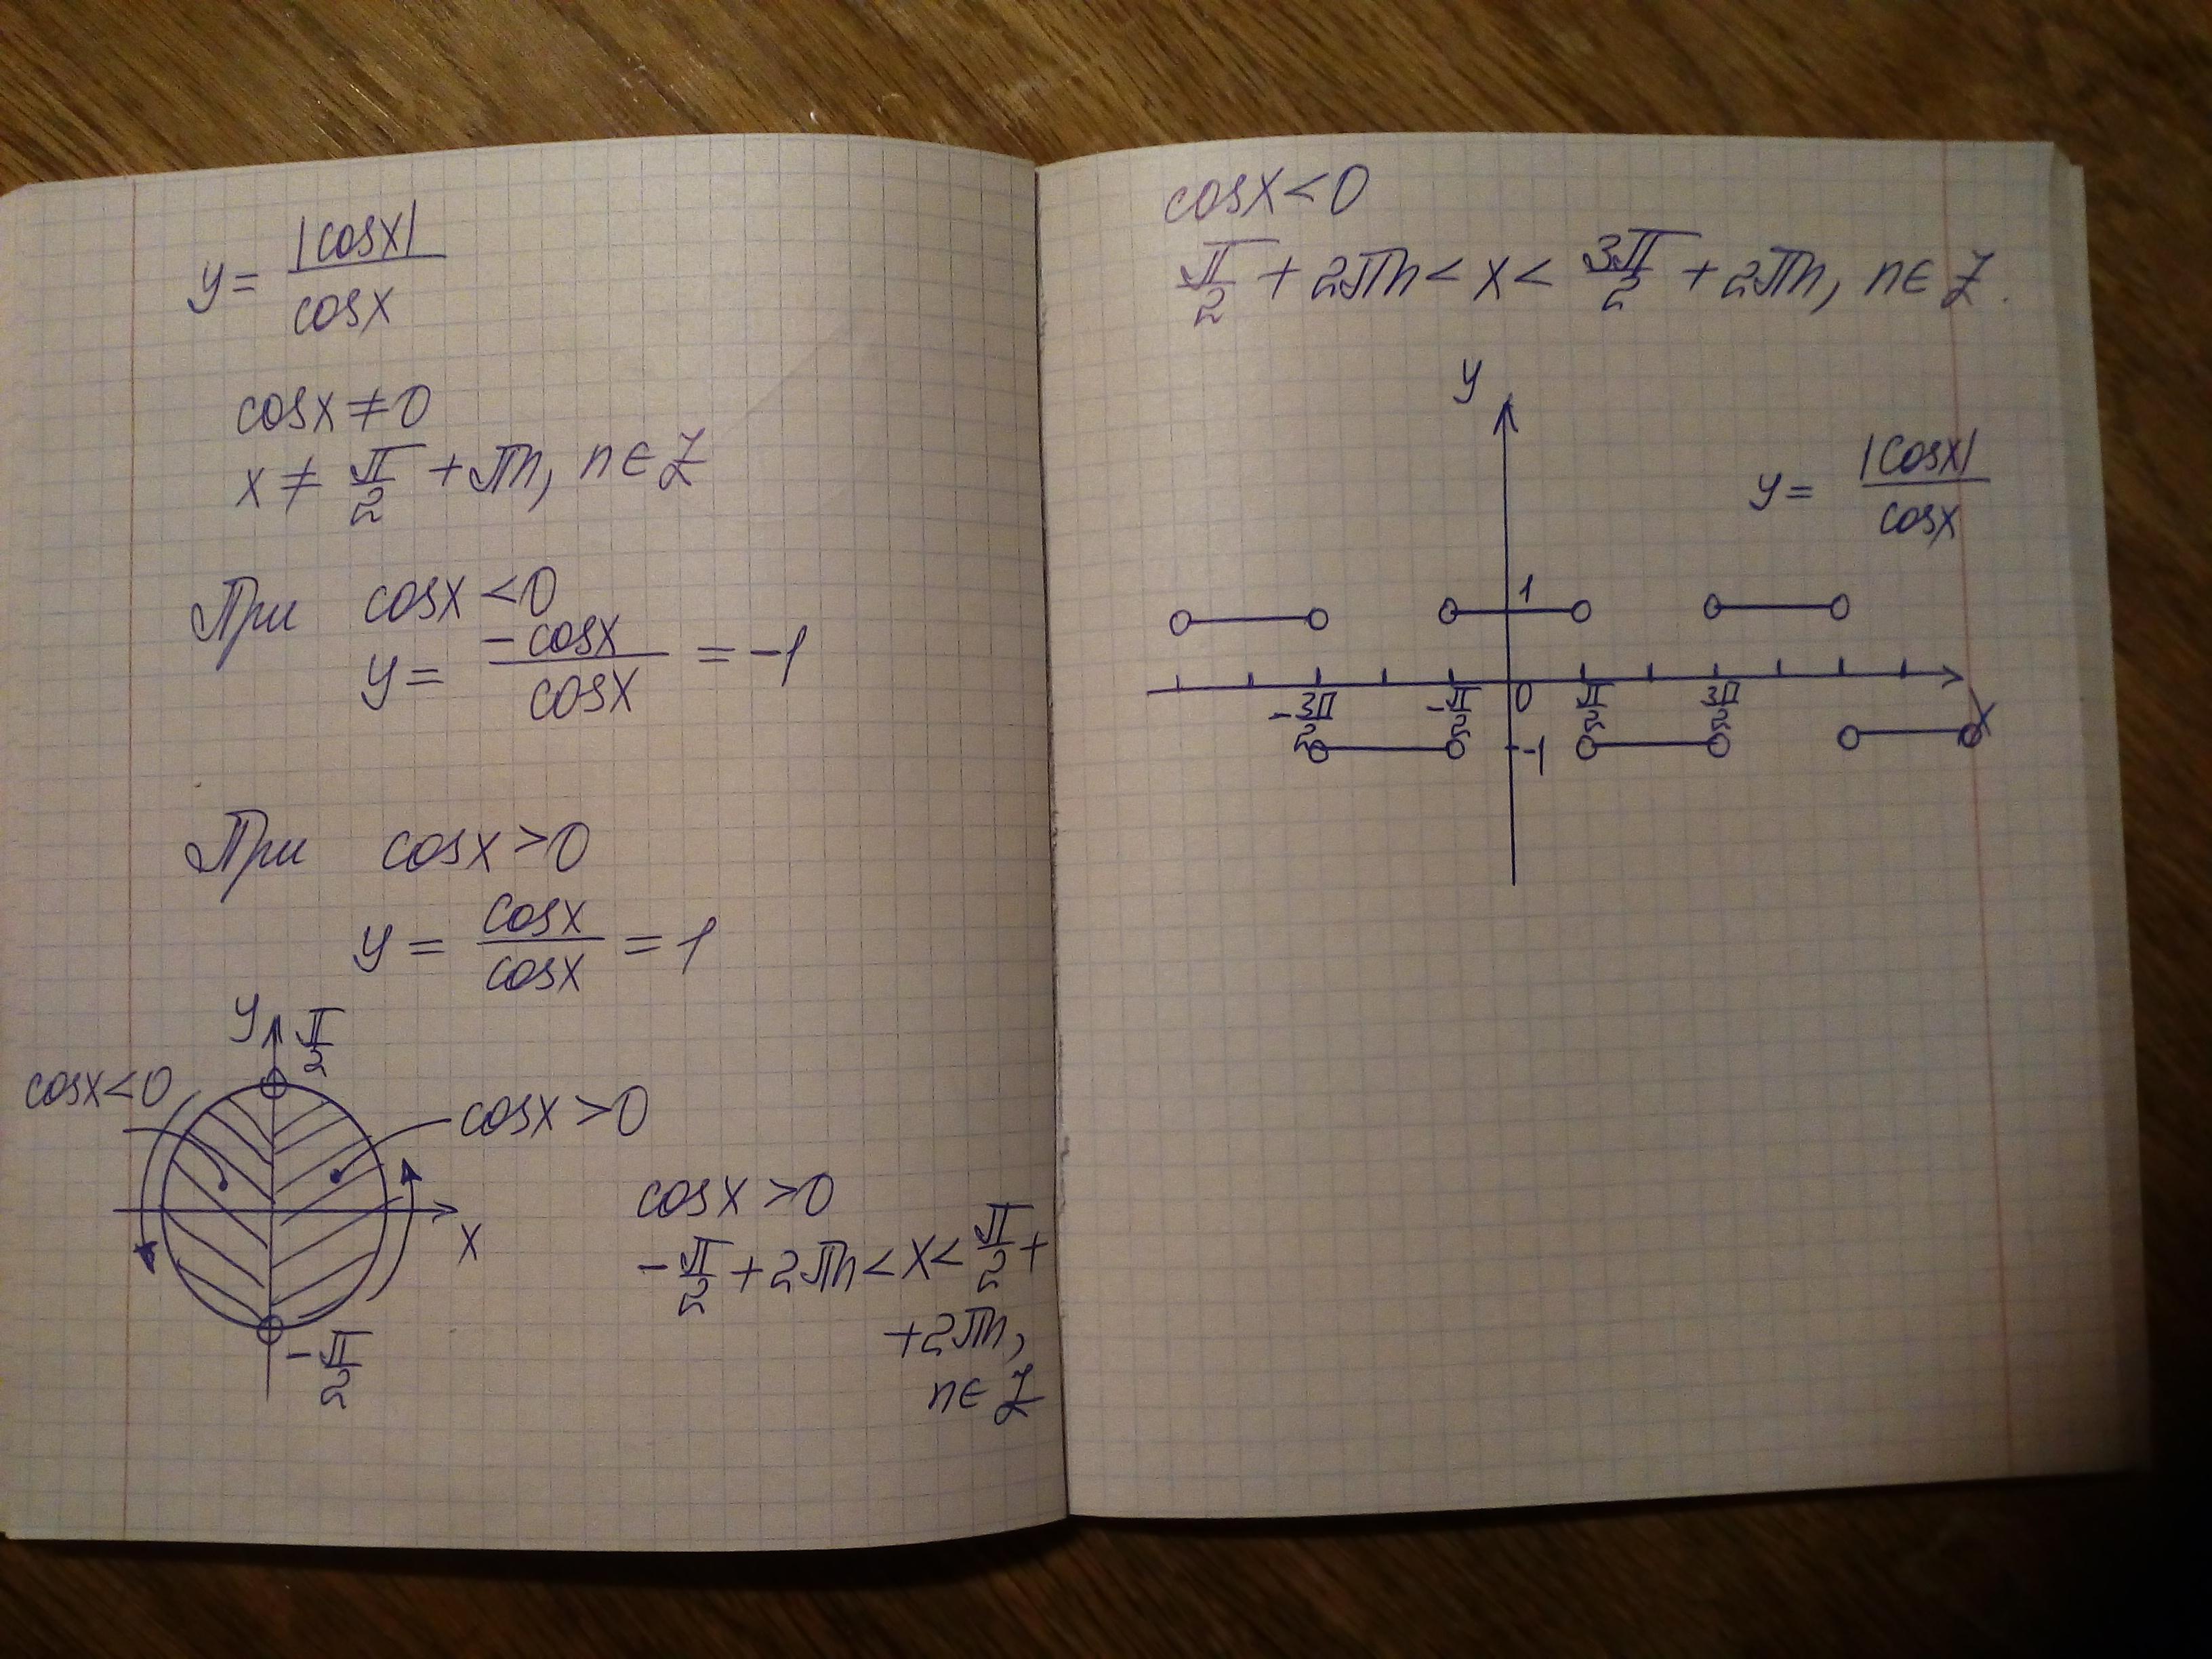 y = |cosx| / cosx
cosx ≠ 0
x ≠ π/2 + πn, n ∈ Z
При cosx < 0
y = -cosx / cosx = -1
При cosx > 0
y = cosx / cosx = 1
y π/2
cosx < 0
cosx > 0
x
-π/2
cosx > 0
-π/2 + 2πn < x < π/2 +
+ 2πn,
n ∈ Z
cosx < 0
π/2 + 2πn < x < 3π/2 + 2πn, n ∈ Z.
y
y = |cosx| / cosx
1
-3π/2 -π/2 0 π/2 3π/2 x
-1